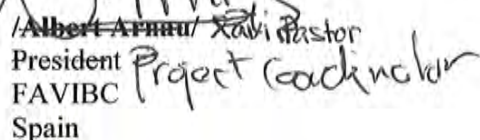 /Albert Arnau/ Xavi Pastor
President Project Coordinator
FAVIBC
Spain